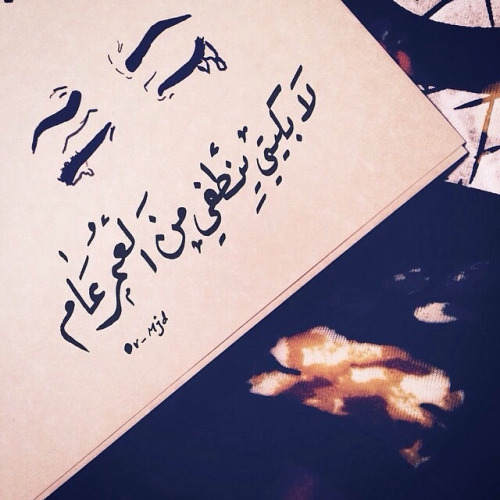 لَا بكيتيِ ينْطفي من اَلعمر عَام
or_Mjd